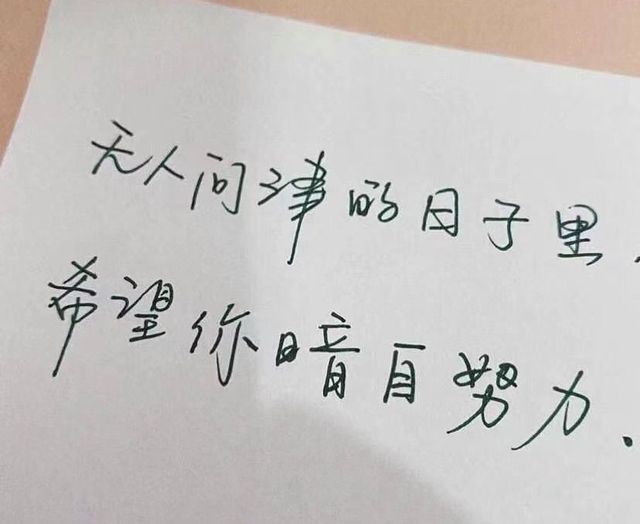 无人问津的日子里，
希望你暗自努力.